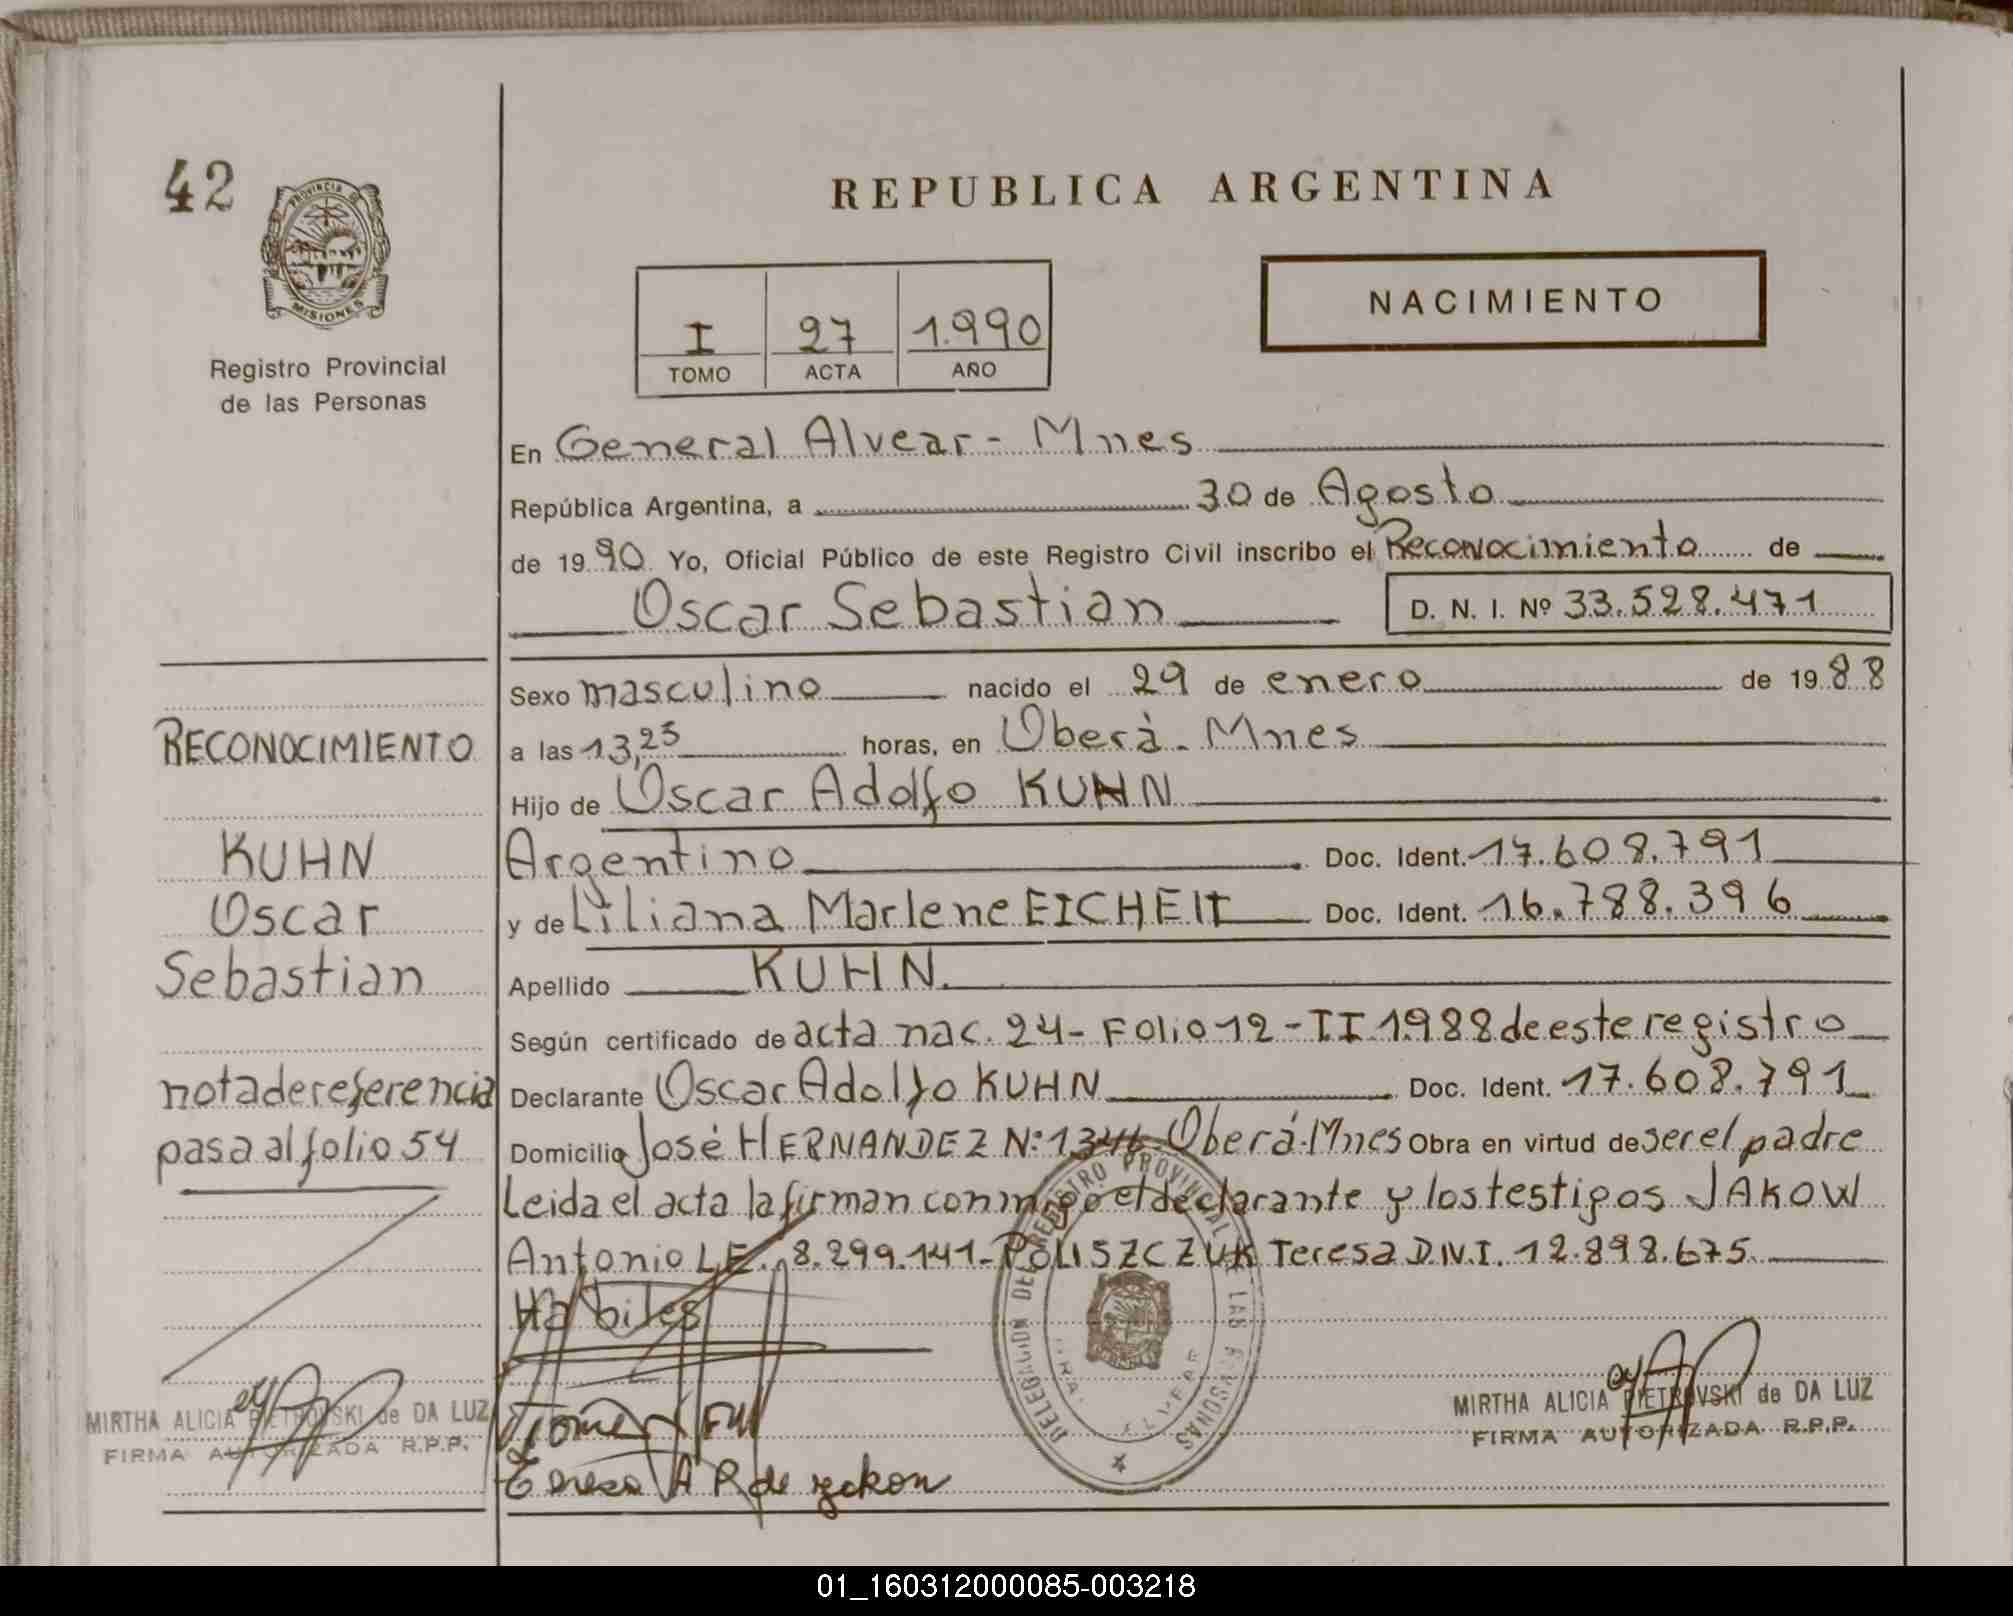 42
PROVINCIA DE
MISIONES
Registro Provincial
de las Personas
RECONOCIMIENTO
KUHN
Oscar
Sebastian
nota de referencia
pasa al folio 54
MIRTHA ALICIA PIETROVSKI de DA LUZ
FIRMA AUTORIZADA R.P.P.
REPUBLICA ARGENTINA
I 27 1.990
TOMO ACTA AÑO
NACIMIENTO
En General Alvear - Mnes
República Argentina, a 30 de Agosto
de 19 90 Yo, Oficial Público de este Registro Civil inscribo el Reconocimiento de
Oscar Sebastian D. N. I. Nº 33.528.471
Sexo masculino nacido el 29 de enero de 19 88
a las 13,25 horas, en Oberá - Mnes
Hijo de Oscar Adolfo KUHN
Argentino Doc. Ident. 17.608.791
y de Liliana Marlene EICHELT Doc. Ident. 16.788.396
Apellido KUHN
Según certificado de acta nac. 24 - Folio 12 - II 1988 de este registro
Declarante Oscar Adolfo KUHN Doc. Ident. 17.608.791
Domicilio José HERNANDEZ Nº 1346 Oberá - Mnes Obra en virtud de ser el padre
Leida el acta la firman conmigo el declarante y los testigos JAKOW
Antonio L.E. 8.299.141 - POLISZCZUK Teresa D.N.I. 12.898.675
Habiles
DELEGACION DEL REGISTRO PROVINCIAL DE LAS PERSONAS
Teresa A P de
MIRTHA ALICIA PIETROVSKI de DA LUZ
FIRMA AUTORIZADA R.P.P.
01_160312000085-003218